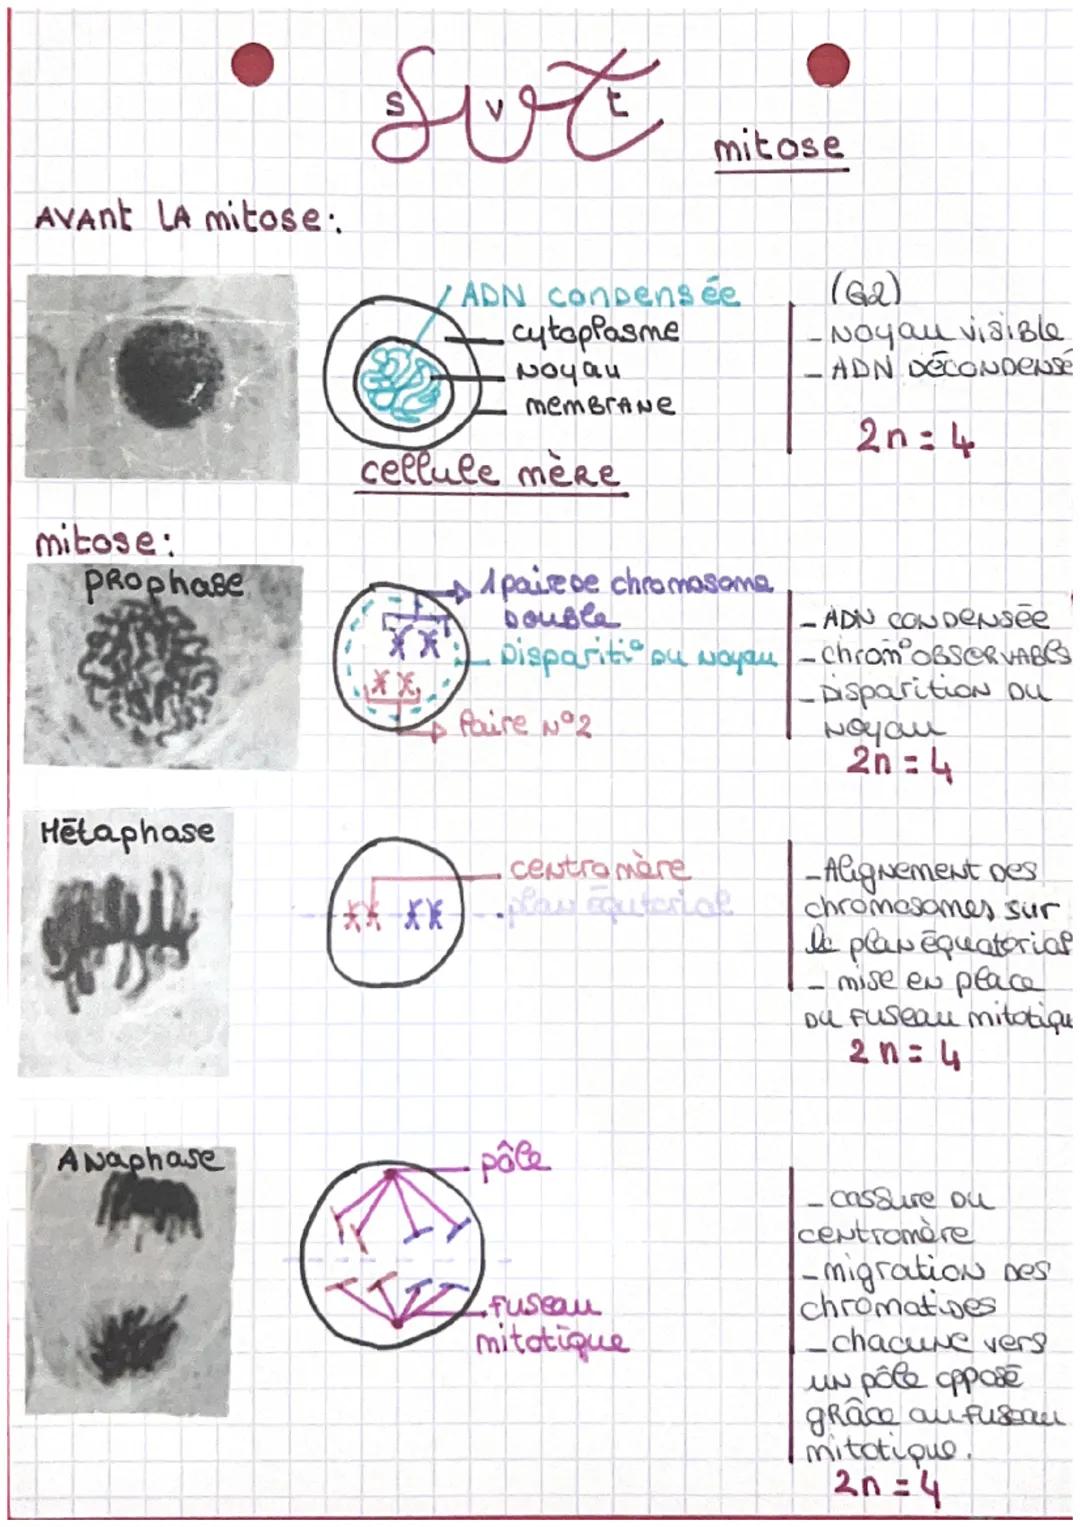 Svt
s v t
mitose
AVAnt LA mitose:
ADN condensée
cytoplasme
Noyau
memBrANe
cellule mère
(G2)
- Noyau visible
- ADN DÉCONDENSÉ
2n = 4
mitose:
prophase
1 paire de chromosome
Double
Dispariti° du noyau
Paire N°2
- ADN CONDENSÉE
- chrom° OBSERVABLES
- Disparition du
Noyau
2n = 4
Métaphase
centromère
plan équtorial
- Alignement des
chromosomes sur
le plan équatorial
- mise en place
du fuseau mitotique
2n = 4
Anaphase
pôle
fuseau
mitotique
- cassure du
centromère
- migration des
chromatides
- chacune vers
un pôle opposé
grâce au fuseau
mitotique.
2n = 4